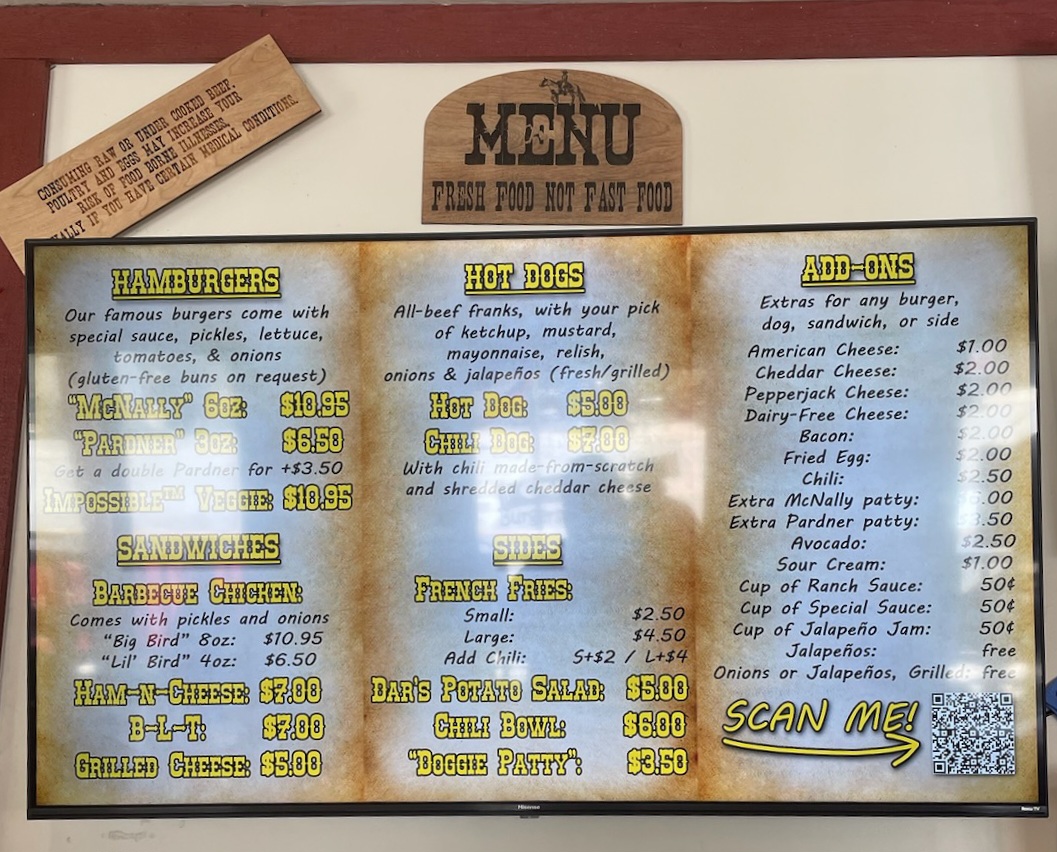 CONSUMING RAW OR UNDER COOKED BEEF,
POULTRY AND EGGS MAY INCREASE YOUR
RISK OF FOOD BORNE ILLNESSES,
IF YOU HAVE CERTAIN MEDICAL CONDITIONS.
MENU
FRESH FOOD NOT FAST FOOD
HAMBURGERS
Our famous burgers come with
special sauce, pickles, lettuce,
tomatoes, & onions
(gluten-free buns on request)
"McNally" 6oz: $10.95
"Pardner" 3oz: $6.50
Get a double Pardner for +$3.50
Impossible™ Veggie: $10.95
SANDWICHES
Barbecue Chicken:
Comes with pickles and onions
"Big Bird" 8oz: $10.95
"Lil' Bird" 4oz: $6.50
Ham-n-Cheese: $7.00
B-L-T: $7.00
Grilled Cheese: $5.00
HOT DOGS
All-beef franks, with your pick
of ketchup, mustard,
mayonnaise, relish,
onions & jalapeños (fresh/grilled)
Hot Dog: $5.00
Chili Dog: $7.00
With chili made-from-scratch
and shredded cheddar cheese
SIDES
French Fries:
Small: $2.50
Large: $4.50
Add Chili: S+$2 / L+$4
Dar's Potato Salad: $5.00
Chili Bowl: $6.00
"Doggie Patty": $3.50
ADD-ONS
Extras for any burger,
dog, sandwich, or side
American Cheese: $1.00
Cheddar Cheese: $2.00
Pepperjack Cheese: $2.00
Dairy-Free Cheese: $2.00
Bacon: $2.00
Fried Egg: $2.00
Chili: $2.50
Extra McNally patty:
Extra Pardner patty: $3.50
Avocado: $2.50
Sour Cream: $1.00
Cup of Ranch Sauce: 50¢
Cup of Special Sauce: 50¢
Cup of Jalapeño Jam: 50¢
Jalapeños: free
Onions or Jalapeños, Grilled: free
SCAN ME!
Hisense
Roku TV